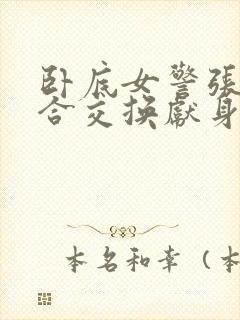 卧底女警張
合交换獻身
本名和幸（本